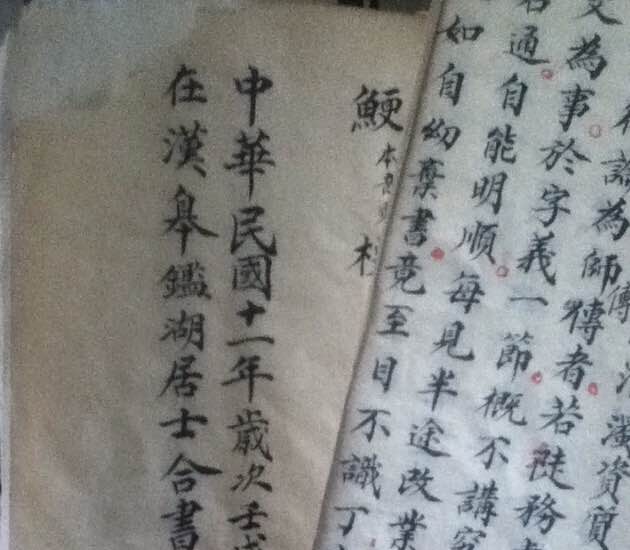 濁資質
論為師傳者若徒務
文為事於字義一節概不講究
若通自能明順每見半途改業
如自幼棄書竟至目不識丁
鯁
中華民國十一年歲次壬戌
在漢皋鑑湖居士合書